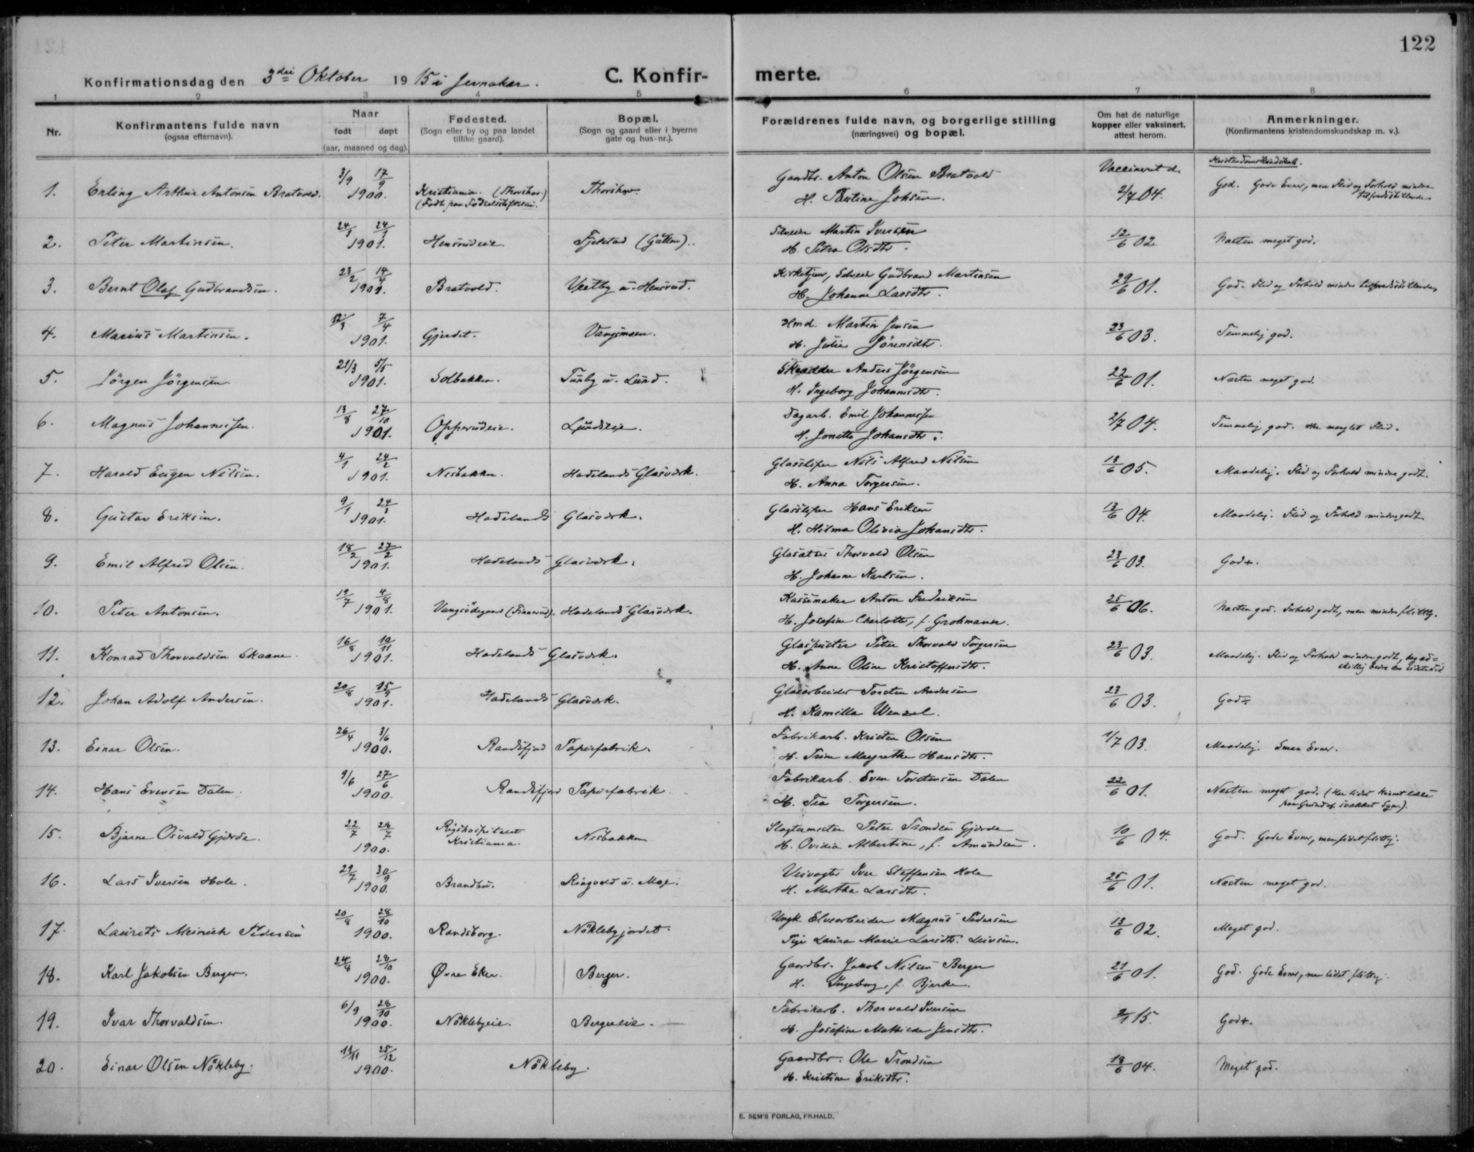 122
Konfirmationsdag den 3die Oktober 1915 i Jevnaker. C. Konfirmerte.
1 2 3 4 5 6 7 8
Nr. Konfirmantens fulde navn (ogsaa efternavn). Naar født døpt (aar, maaned og dag). Fødested. (Sogn eller by og paa landet tillike gaard). Bopæl. (Sogn og gaard eller i byerne gate og hus-nr.). Forældrenes fulde navn, og borgerlige stilling (næringsvei) og bopæl. Om hat de naturlige kopper eller vaksinert, attest herom. Anmerkninger. (Konfirmantens kristendomskundskap m. v.).
Kristendomskundskab.
1. Erling Arthur Antonsen Bratvold. 3/9 17/9 1900. Kristiania. Gaardbr. Anton Olsen Bratvold Vaccineret d. 2/7 04. God. Gode Evner, men Flid og Forhold mindre tilfredsstillende
2. Peter Martinsen. 24/1 1901. Martin Iversen 12/6 02. Næsten meget god.
H. Petra Olsdtr.
3. Bernt Olaf Gudbrandsen. 23/2 14/4 1901. Bratvold. Gudbrand Martinsen 29/6 01. God. Flid og Forhold mindre tilfredsstillende
H. Johanne Larsdtr.
4. Marius Martinsen. 7/4 1901. Gjerdet. Hmd. Martin Jensen 23/6 03. Temmelig god.
H. Julie Sørensdtr.
5. Jörgen Jörgensen 21/3 5/5 1901. Solbakken. Skrædder Anders Jörgensen 22/6 01. Næsten meget god.
H. Ingeborg Johannesdtr.
6. Magnus Johannessen. 13/8 27/10 1901. Opperudeie. Dagarb. Emil Johannessen 2/7 04. Temmelig god.
H. Jonette Johansdtr.
7. Harald Eugen Nilsen. 4/1 24/2 1901. Nesbakken. Hadelands Glasværk. Glassliper Nils Alfred Nilsen 13/6 05. Maadelig. Flid og Forhold mindre godt.
H. Anna Torgersen.
8. Gustav Eriksen. 9/1 1901. Hadelands Glasværk. Glassliper Hans Eriksen 13/6 04. Maadelig. Flid og Forhold mindre godt
H. Hilma Olivia Johansdtr.
9. Emil Alfred Olsen 18/2 27/2 1901. Hadelands Glasværk. Thorvald Olsen 23/6 03. God
H. Johanne Karlsen.
10. Peter Antonsen. 19/7 4/8 1901. Hadelands Glasværk. Kassemaker Anton Fredriksen 25/6 06. Næsten god. Forhold godt, men mindre flittig.
H. Josefine Charlotte, f. Grohmann.
11. Konrad Thorvaldsen Skaane. 16/8 10/11 1901. Hadelands Glasværk. Glaspuster Peter Thorvald Torgersen 23/6 03. Maadelig. Flid og Forhold mindre godt
H. Anne Oline Kristoffersdtr.
12. Johan Adolf Andersen. 20/8 15/9 1901. Hadelands Glasværk. Glasarbeider Torsten Andersen 23/6 03. God
H. Kamilla Wenzel.
13. Einar Olsen. 26/4 3/6 1900. Randsfjord Papirfabrik. Fabrikarb. Kristen Olsen 1/7 03. Maadelig. Smaa Evner.
H. Trine Margrethe Hansdtr.
14. Hans Evensen Dalen. 9/6 27/6 1900. Randsfjord Papirfabrik. Fabrikarb. Even Torstensen Dalen 22/6 01. Næsten meget god.
H. Tea Torgersen.
15. Bjarne Osvald Gjerde. 22/7 28/7 1900. Rigshospitalet Kristiania. Nesbakken Slagtermester Peter Trondsen Gjerde 10/6 04. God. Gode Evner, men lidet flittig.
H. Ovidia Albertine, f. Amundsen.
16. Lars Iversen Hole. 29/7 30/9 1900. Brandbu. Ringvold u. Mo. Veivogter Iver Steffensen Hole 25/6 01. Næsten meget god.
H. Marthe Larsdtr.
17. Laurits Meinrich Pedersen 20/8 28/10 1900. Randsborg. Nöklebyjordet. Ungk. Elvearbeider Magnus Pedersen 13/6 02. Meget god.
Pige Laura Marie Larsdtr.
18. Karl Jakobsen Berger. 24/8 28/10 1900. Øvre Eker. Berger. Gaardbr. Jakob Nilsen Berger 21/6 01. God. Gode Evner, men lidet flittig.
H. Ingeborg f. Bjerke
19. Ivar Thorvaldsen. 6/9 28/10 1900. Nöklebyeie. Bergereie. Fabrikarb. Thorvald Iversen 15. God.
H. Josefine Mathilde Jensdtr.
20. Einar Olsen Nökleby. 13/11 25/12 1900. Nökleby. Gaardbr. Ole Trondsen 13/6 04. Meget god.
H. Kristine Eriksdtr.
E. SEM'S FORLAG, FR.HALD.